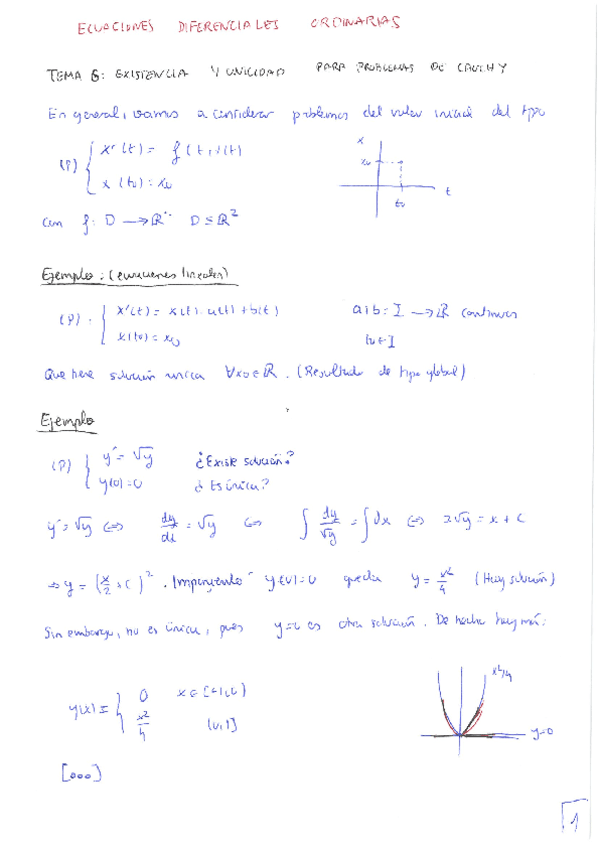 ECUACIONES DIFERENCIALES ORDINARIAS
TEMA 6: EXISTENCIA Y UNICIDAD PARA PROBLEMAS DE CAUCHY
En general, vamos a considerar problemas del valor inicial del tipo
(P) { x'(t) = f(t, x(t)
x(t0) = x0
x
x0
t0
t
con f: D → R D ⊆ R²
Ejemplo: (ecuaciones lineales)
(P) . { x'(t) = x(t). a(t) + b(t) a, b: I → R continuas
x(t0) = x0 t0 ∈ I
Que tiene solución única ∀x0 ∈ R. (Resultado de tipo global)
Ejemplo
(P) { y' = √y ¿Existe solución?
y(0) = 0 ¿Es única?
y' = √y ⇔ dy/dx = √y ⇔ ∫ dy/√y = ∫ dx ⇔ 2√y = x + C
⇒ y = (x/2 + C)². Imponiendo y(0) = 0 queda y = x²/4 (Hay solución)
Sin embargo, no es única, pues y=0 es otra solución. De hecho hay más:
y(x) = { 0 x ∈ [-1,0)
x²/4 [0,1]
x²/4
y=0
[ooo]
1